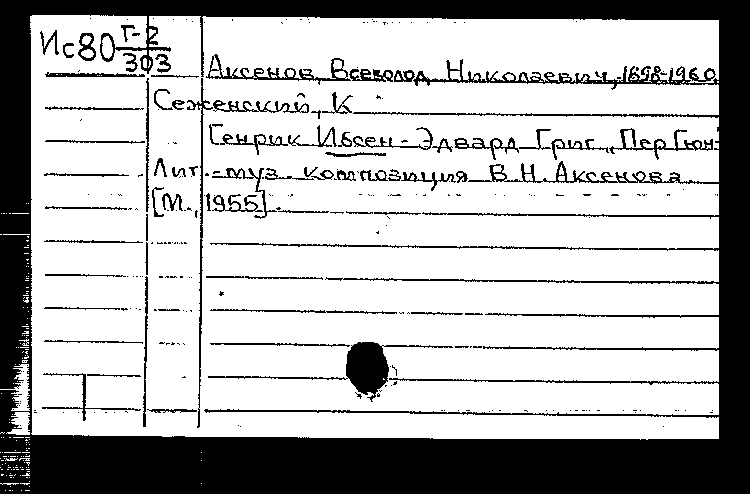 Ис80 Г-2/303
Аксенов, Всеволод Николаевич, 1898-1960
Сеженский, К
Генрик Ибсен - Эдвард Григ „Пер Гюн
Лит.-муз. композиция В.Н. Аксенова
[М., 1955].